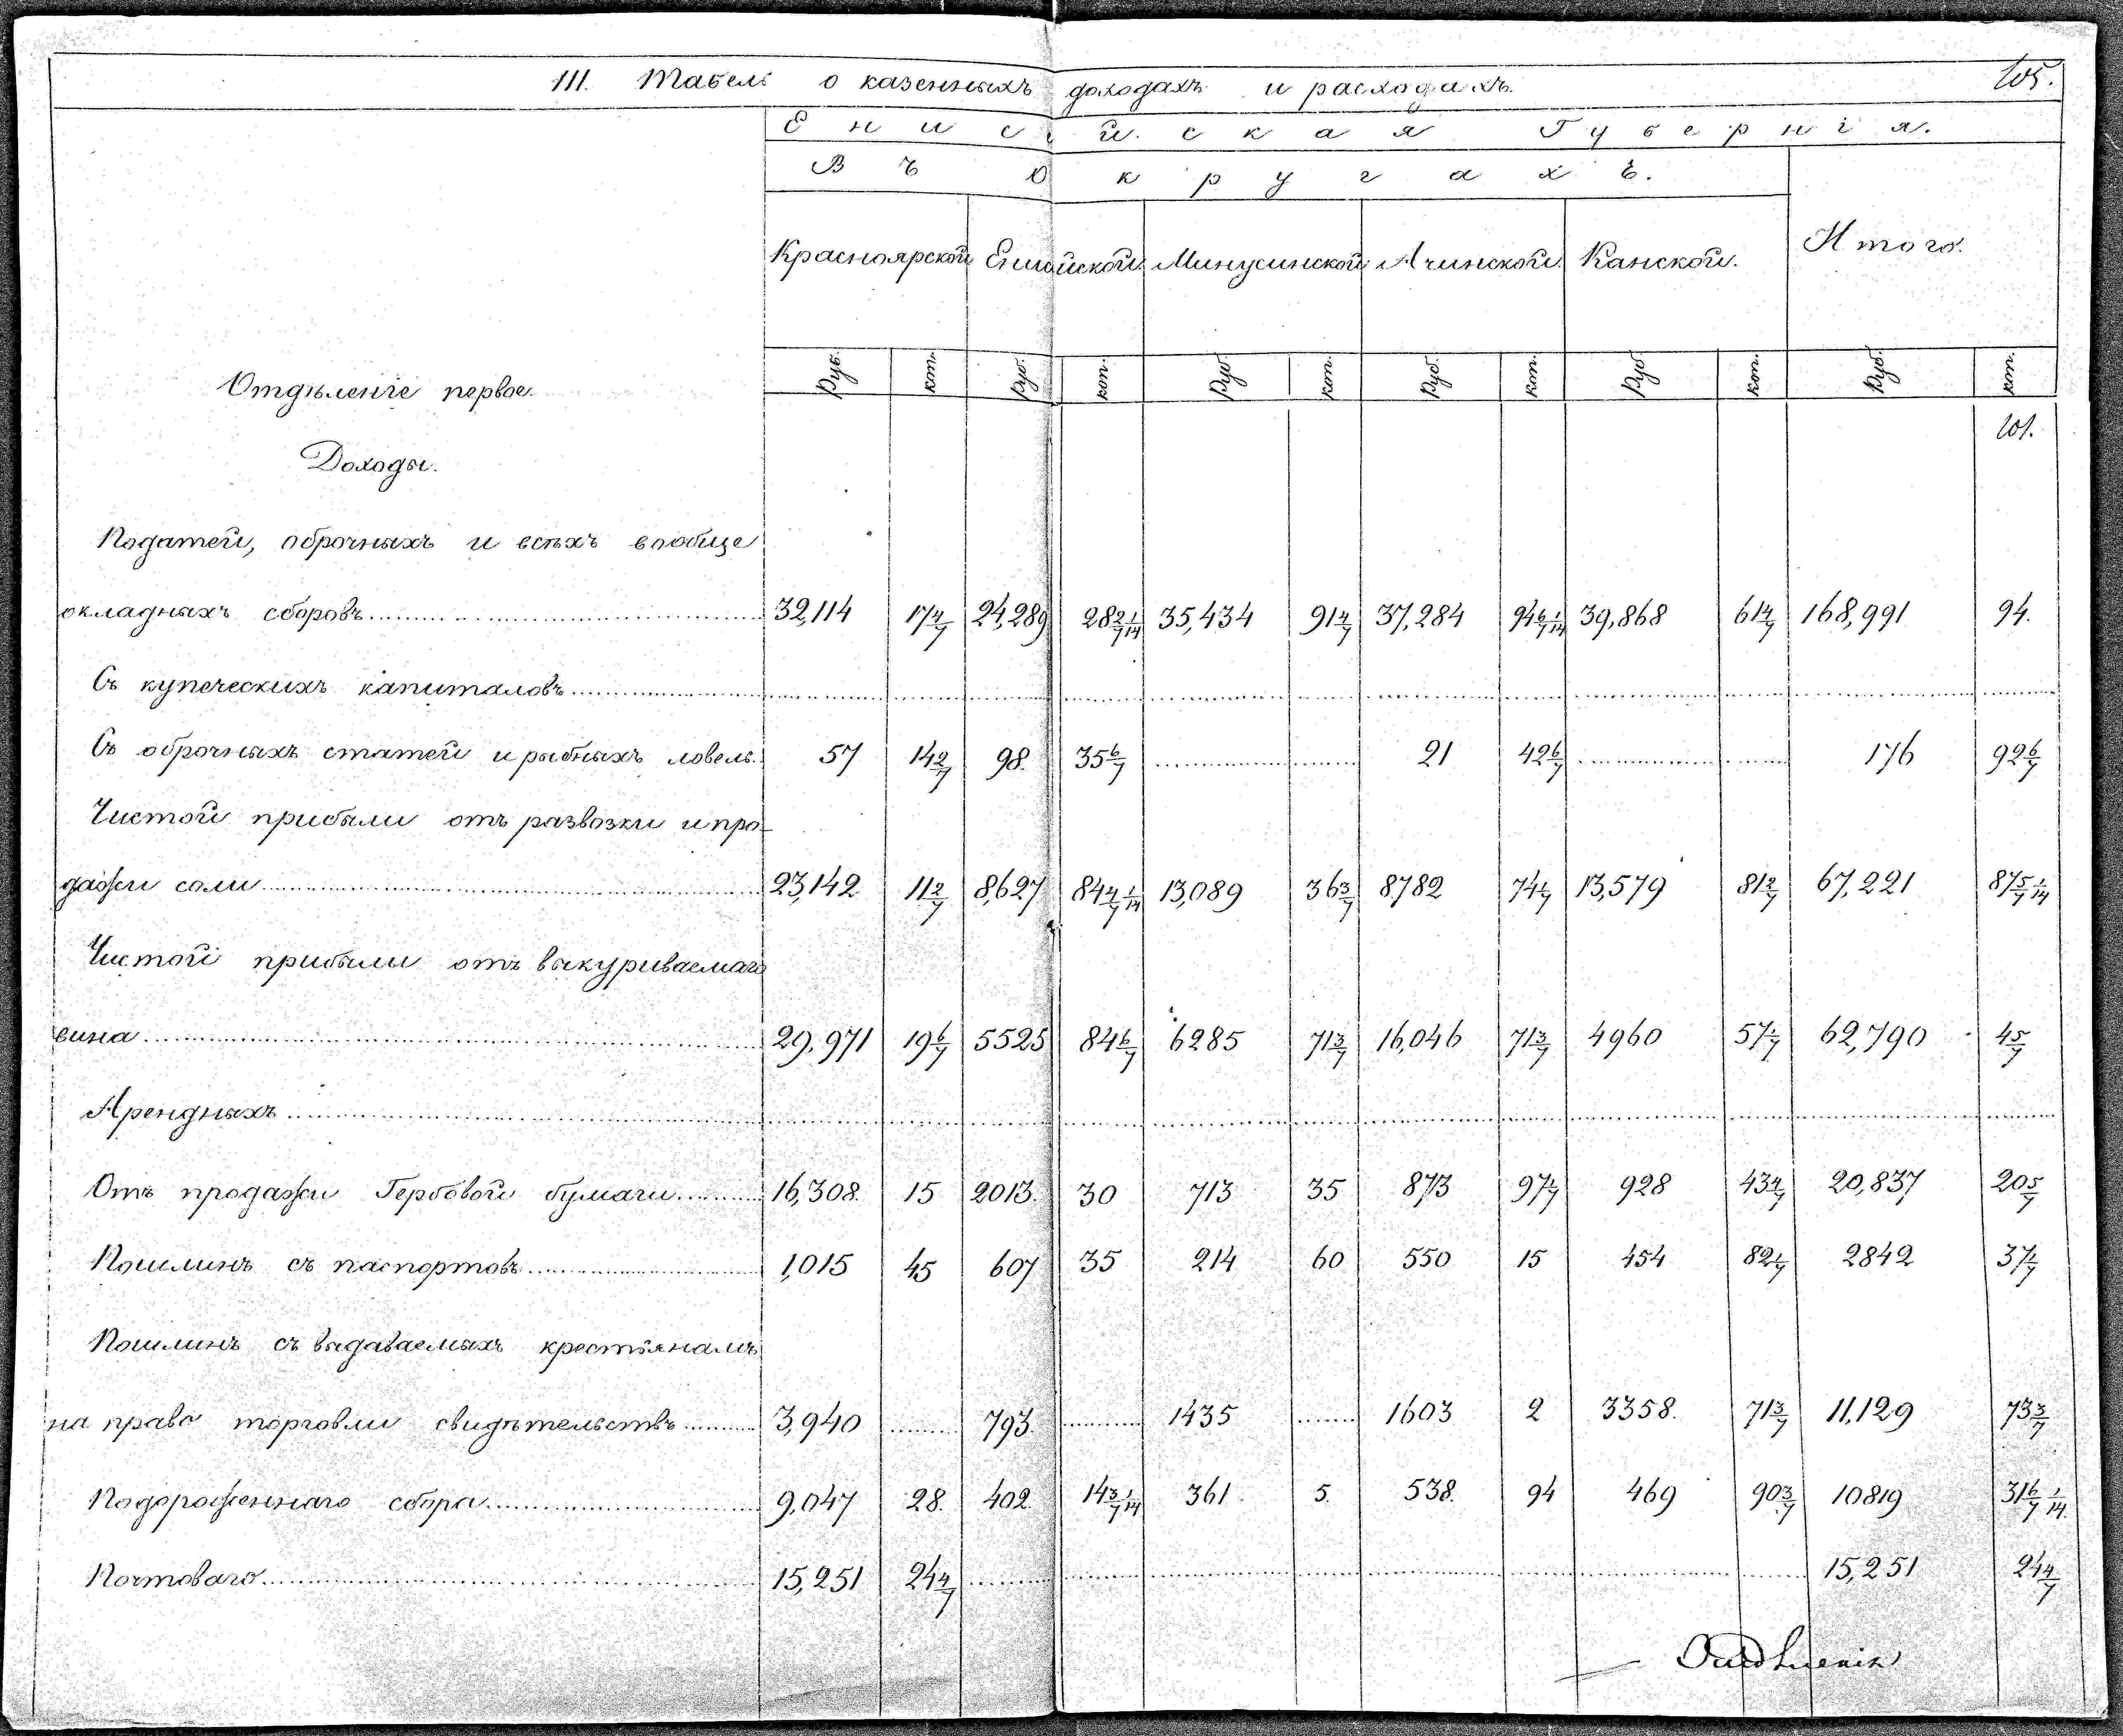 III. Табель о казенныхъ доходахъ и расходахъ. 105.
Енисейская Губернія.
Въ Округахъ.
Красноярской Енисейской Минусинской Ачинской Канской. Итого.
Отдѣленіе первое. Руб. коп. Руб. коп. Руб. коп. Руб. коп. Руб. коп. Руб. коп.
101.
Доходы.
Податей, оброчныхъ и всѣхъ вообще
окладныхъ сборовъ 32,114 17 4/7 24,289 28 2/7 1/14 35,434 91 4/7 37,284 94 6/7 1/14 39,868 61 4/7 168,991 94.
Съ купеческихъ капиталовъ
Съ оброчныхъ статей и рыбныхъ ловель. 57 14 2/7 98. 35 6/7 21 42 6/7 176 92 6/7
Чистой прибыли отъ развозки и про-
дажи соли 23,142 11 2/7 8,627 84 4/7 1/14 13,089 36 3/7 8782 74 1/7 13,579 81 2/7 67,221 87 5/7 1/14
Чистой прибыли отъ выкуриваемаго
вина 29,971 19 6/7 5525 84 6/7 6285 71 3/7 16,046 71 3/7 4960 57 1/7 62,790 4 5/7
Арендныхъ
Отъ продажи Гербовой бумаги 16,308. 15 2013. 30 713 35 873 97 1/7 928 43 4/7 20,837 20 5/7
Пошлинъ съ паспортовъ 1,015 45 607 35 214 60 550 15 454 82 1/7 2842 37 1/7
Пошлинъ съ выдаваемыхъ крестьянамъ
на право торговли свидѣтельствъ 3,940 793. 1435 1603 2 3358. 71 3/7 11,129 73 3/7
Подорожennаго сбора 9,047 28. 402. 14 3/7 1/14 361. 5. 538. 94 469 90 3/7 10819 31 6/7 1/14.
Почтоваго 15,251 24 4/7 15,251 24 4/7